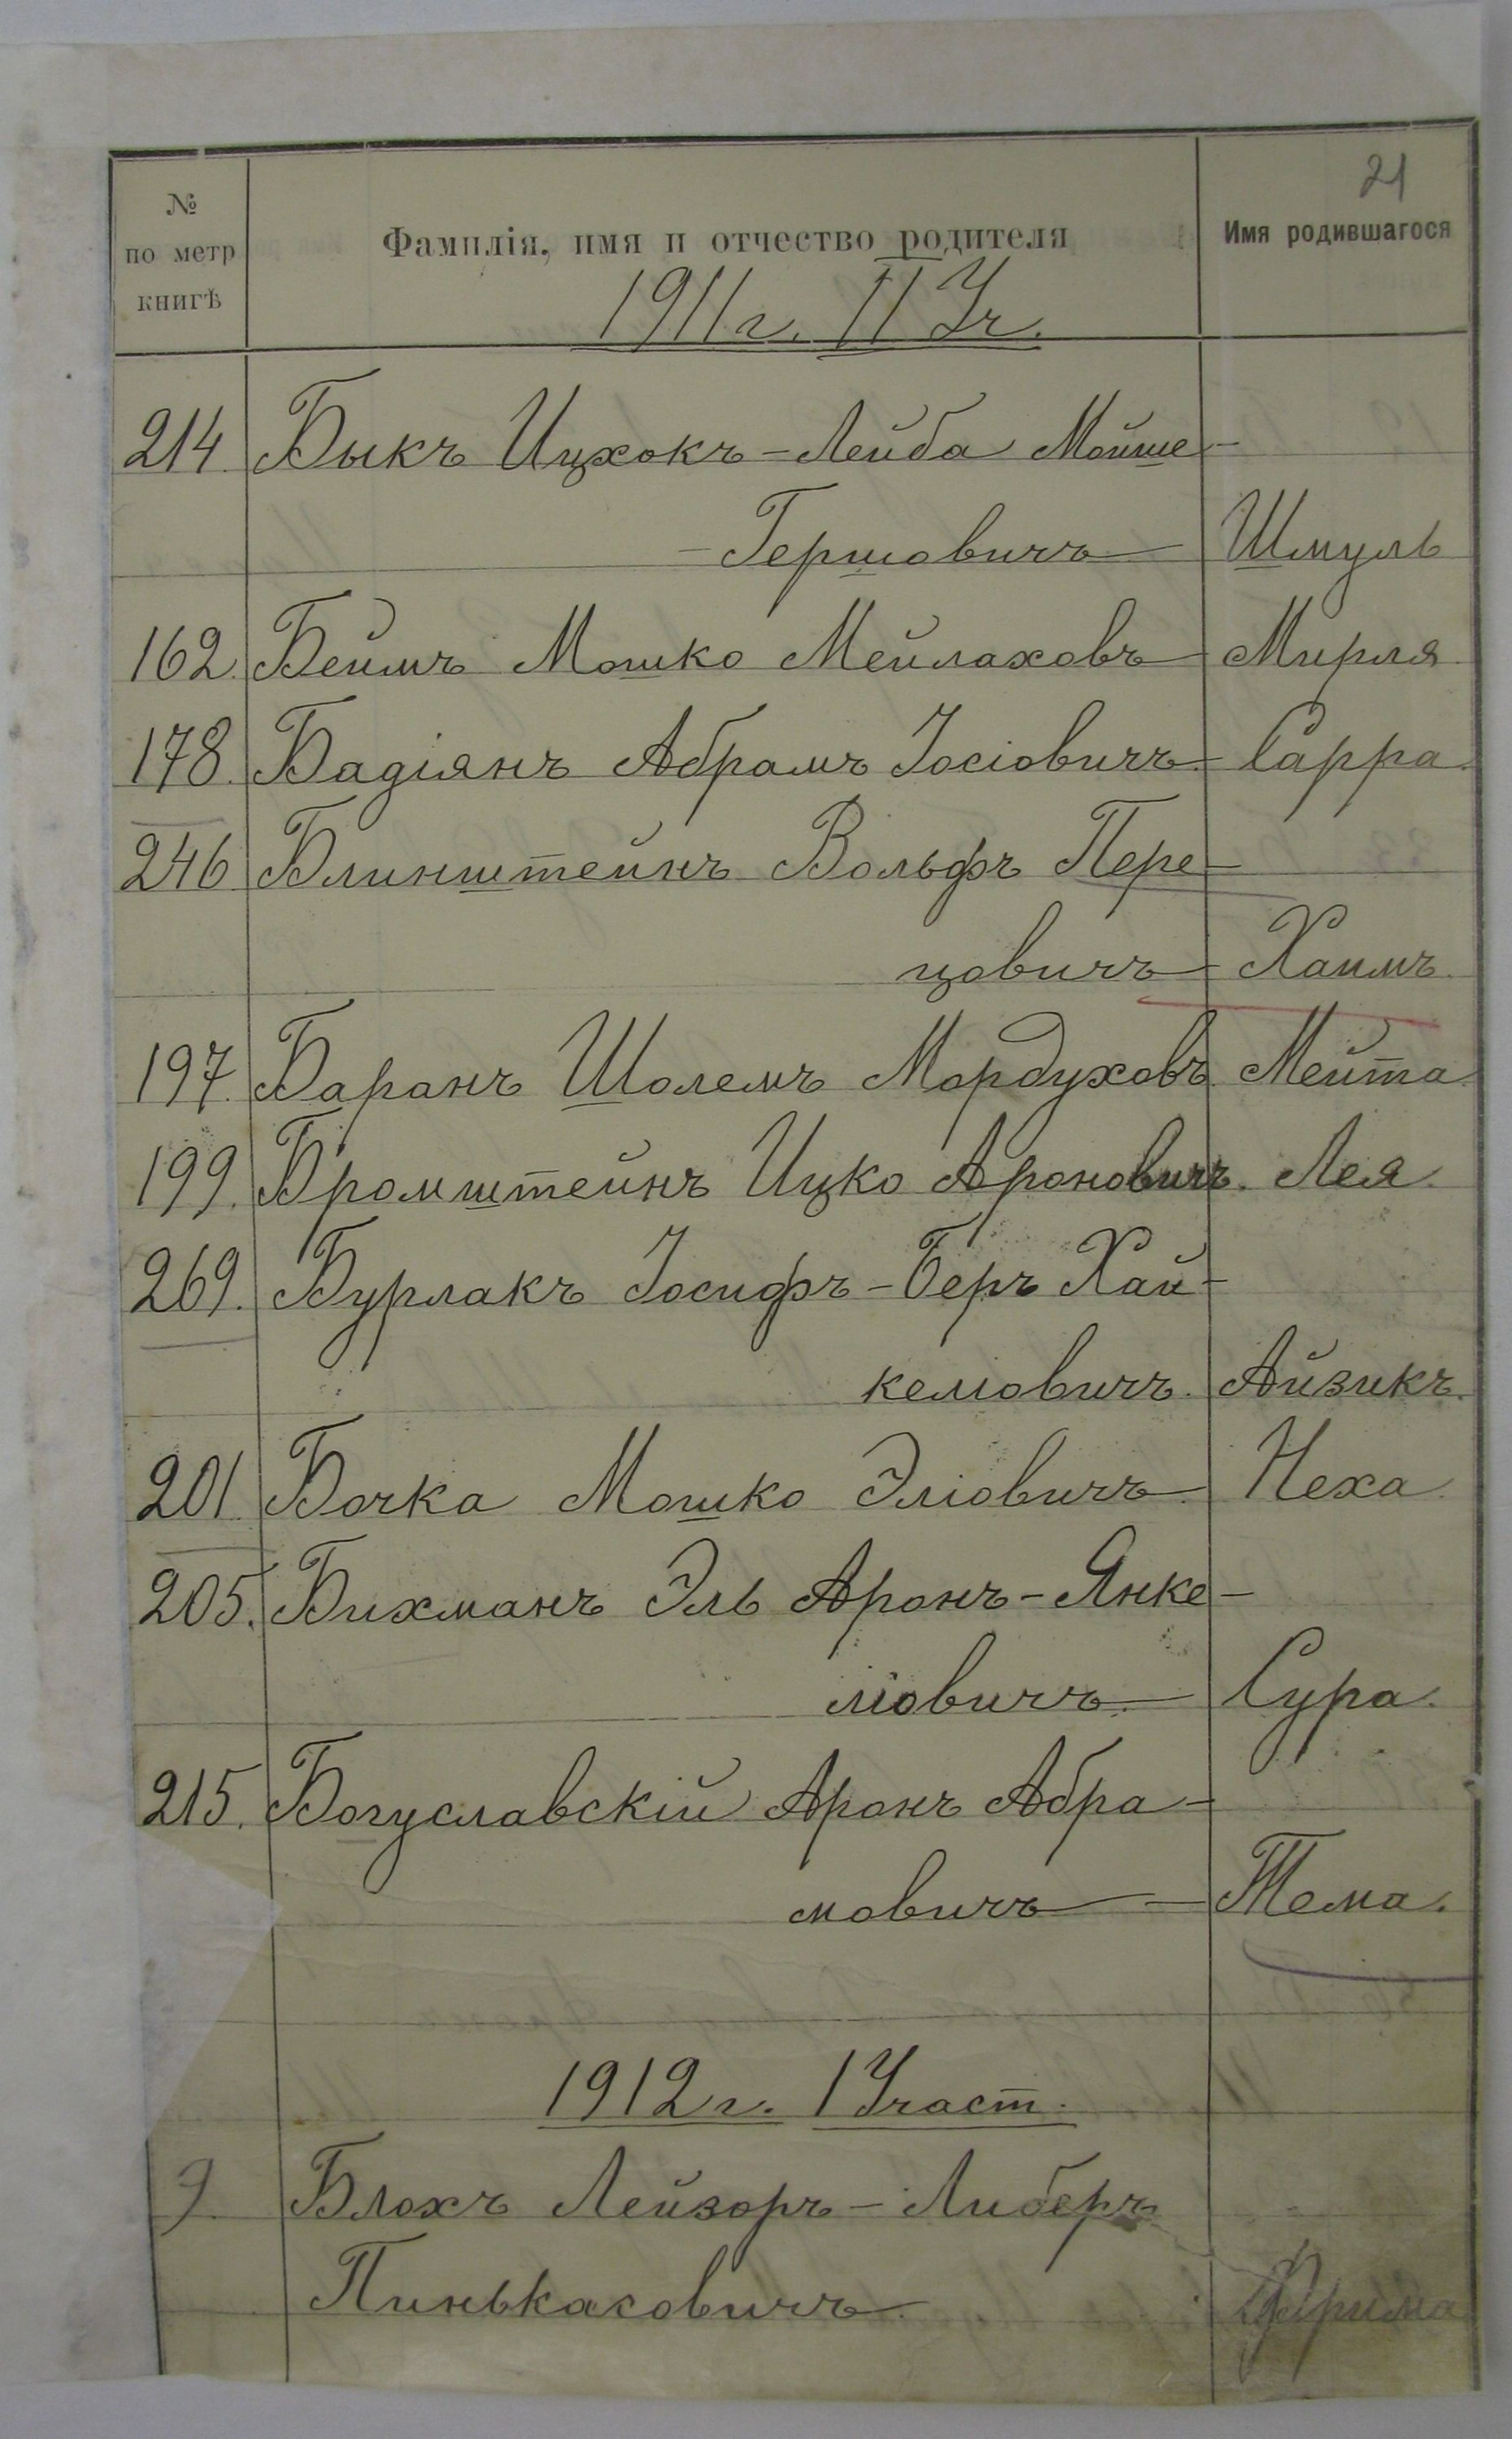 21
№
по метр
книгѣ
Фамилія, имя и отчество родителя
Имя родившагося
1911г. II Уч.
214 Быкъ Ицхокъ-Лейба Мойше-
-Гершовичъ Шмуль
162. Беймъ Мошко Мейлаховъ Мирля
178. Бадіянъ Абрамъ Іосіовичъ. Сарра.
246 Блинштейнъ Вольфъ Пере-
цовичъ Хаимъ.
197. Баранъ Шолемъ Мордуховъ Мейта.
199. Бромштейнъ Ицко Ароновичъ. Лея.
269. Бурлакъ Іосифъ-Беръ Хай-
келіовичъ. Айзикъ.
201 Бочка Мошко Эліовичъ. Неха.
205. Бихманъ Эль Аронъ-Янке-
ліовичъ. Сура.
215. Богуславскій Аронъ Абра-
мовичъ Тема.
1912г. I Участ.
9. Блохъ Лейзоръ-Либеръ
Пинькасовичъ. Фрима